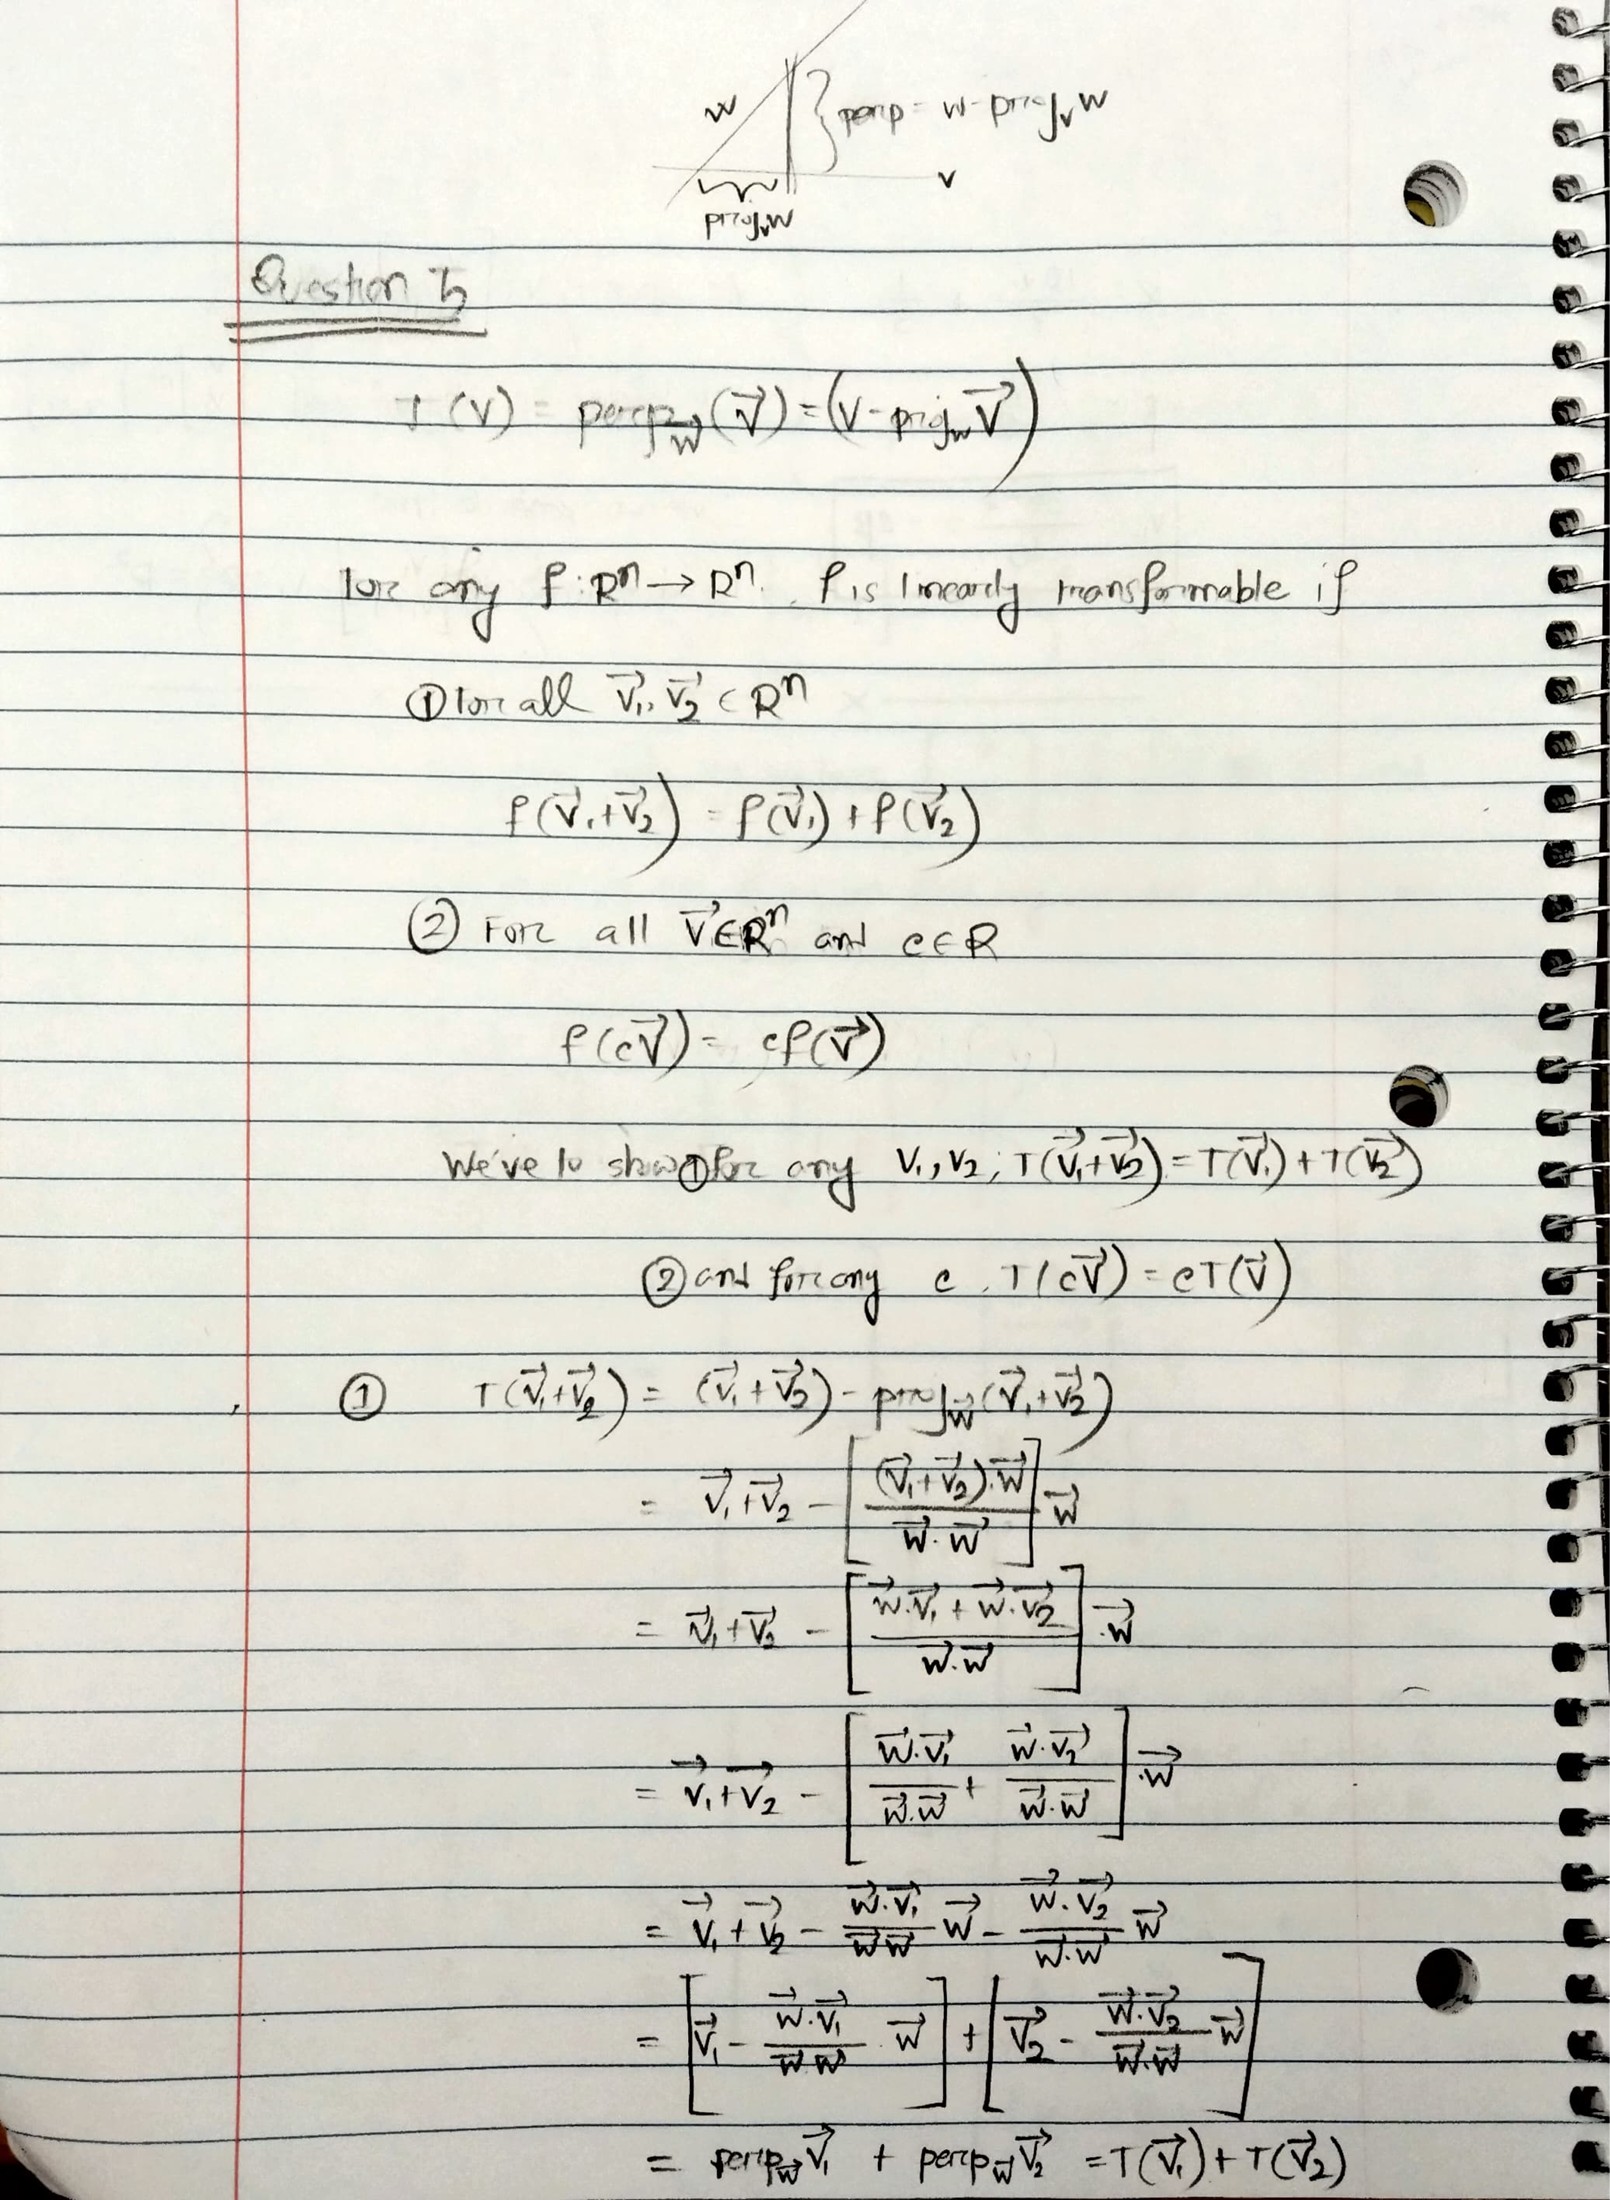 w } perp = w - proj_v w
v
proj_v w
Question 5
T(v) = perp_w⃗ (v⃗) = (v - proj_w v⃗)
for any f: Rⁿ → Rⁿ. f is linearly transformable if
① for all v⃗₁, v⃗₂ ∈ Rⁿ
f(v⃗₁+v⃗₂) = f(v⃗₁) + f(v⃗₂)
② For all v⃗∈Rⁿ and c∈R
f(cv⃗) = cf(v⃗)
We've to show ① for any v₁, v₂; T(v⃗₁+v⃗₂) = T(v⃗₁) + T(v⃗₂)
② and for any c, T(cv⃗) = cT(v⃗)
① T(v⃗₁+v⃗₂) = (v⃗₁+v⃗₂) - proj_w⃗ (v⃗₁+v⃗₂)
= v⃗₁+v⃗₂ - [((v⃗₁+v⃗₂)·w⃗)/(w⃗·w⃗)] w⃗
= v⃗₁+v⃗₂ - [(w⃗·v⃗₁ + w⃗·v⃗₂)/(w⃗·w⃗)] ·w⃗
= v⃗₁+v⃗₂ - [(w⃗·v⃗₁)/(w⃗·w⃗) + (w⃗·v⃗₂)/(w⃗·w⃗)] ·w⃗
= v⃗₁+v⃗₂ - (w⃗·v⃗₁)/(w⃗w⃗) w⃗ - (w⃗·v⃗₂)/(w⃗·w⃗) w⃗
= [v⃗₁ - (w⃗·v⃗₁)/(w⃗w⃗) w⃗] + [v⃗₂ - (w⃗·v⃗₂)/(w⃗·w⃗) w⃗]
= perp_w⃗ v⃗₁ + perp_w⃗ v⃗₂ = T(v⃗₁) + T(v⃗₂)